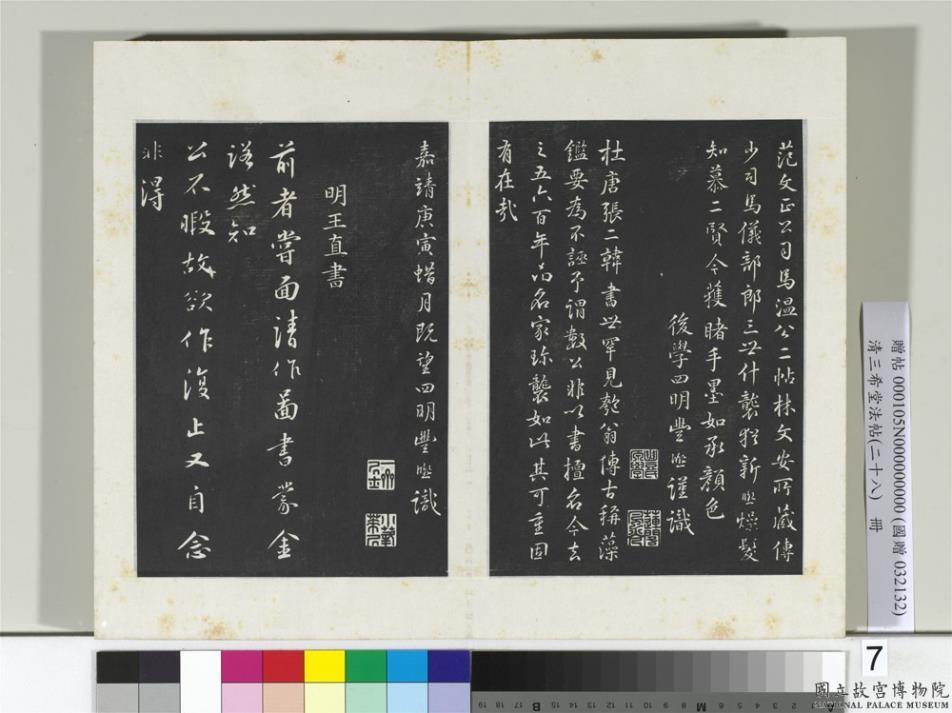 范文正公司馬溫公二帖林文安所藏傳
少司馬儀部郎三世什襲猶新熙燥髮
知慕二賢今獲睹手墨如承顏色
後學四明豐熙謹識
杜唐張二韓書世罕見匏翁傳古稱藻
鑑要為不誣予謂數公非以書擅名今去
之五六百年而名家珍襲如此其可重固
有在哉
嘉靖庚寅蜡月既望四明豐熙識
明王直書
前者嘗面請作啚書蒙金
諾然知
公不暇故欲作復止又自念
非得
贈帖 000105N000000000 (國贈 032132)
清三希堂法帖(二十八) 冊
7
國立故宮博物院
NATIONAL PALACE MUSEUM